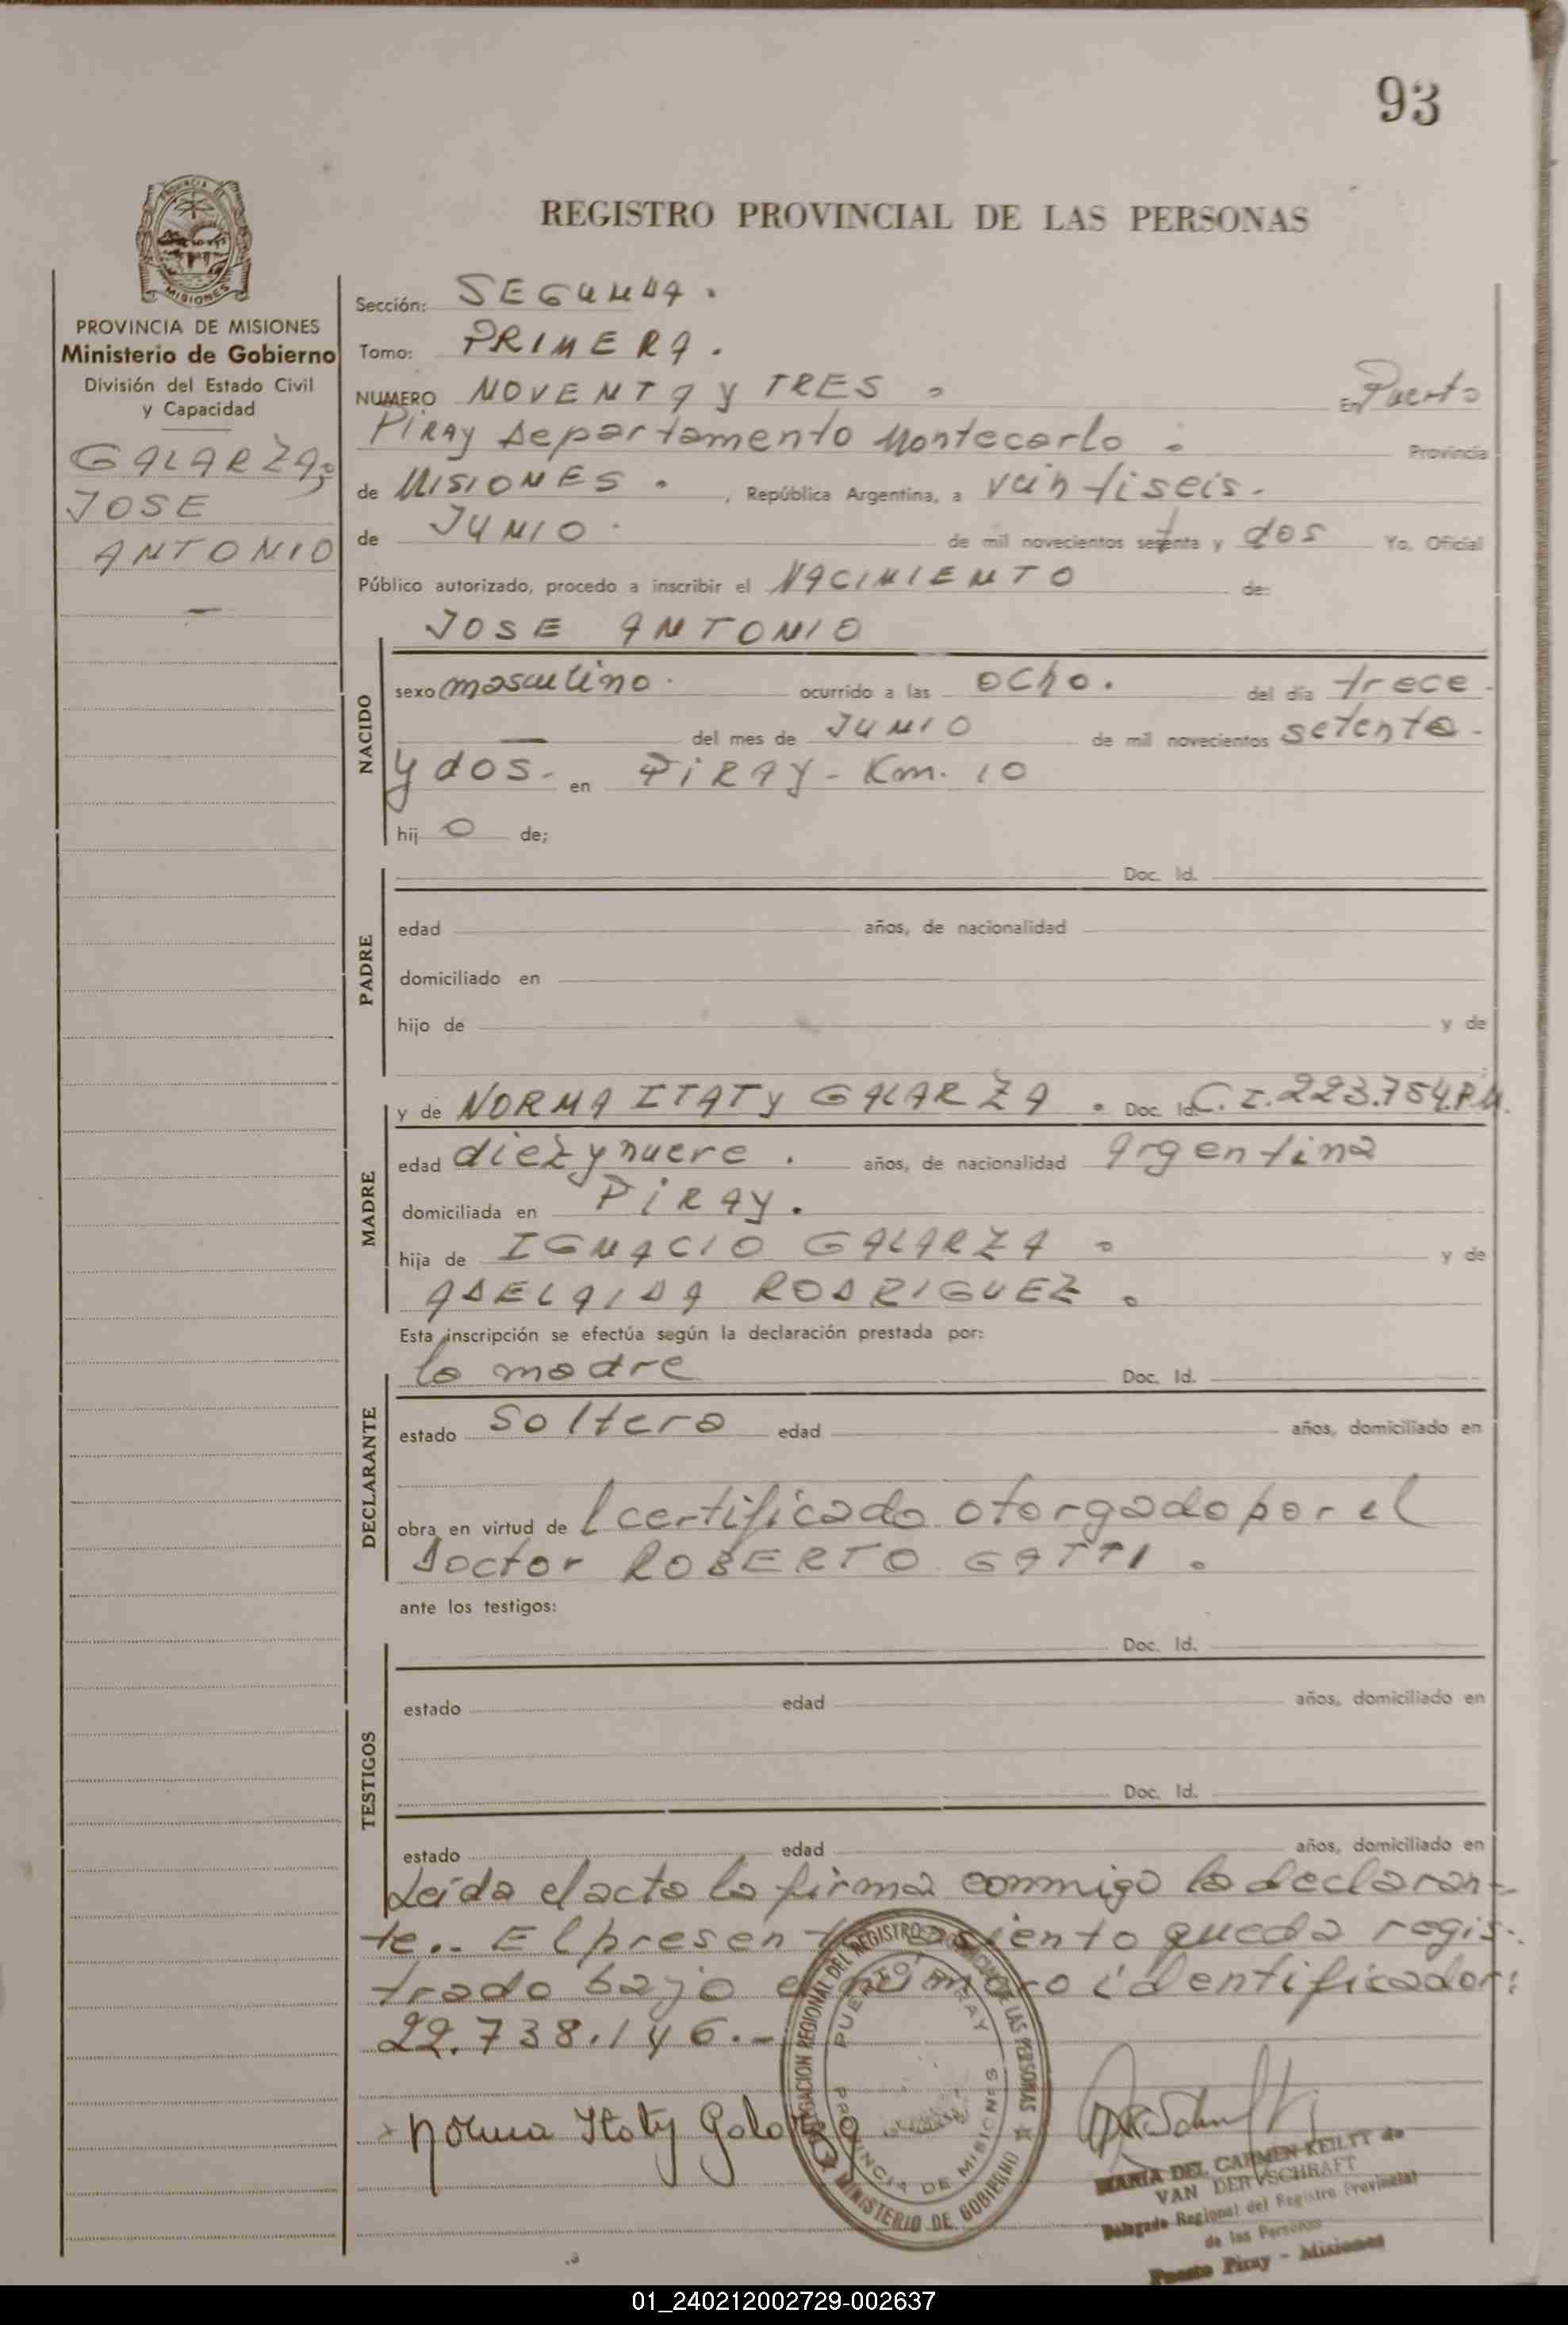 93
PROVINCIA DE
MISIONES
REGISTRO PROVINCIAL DE LAS PERSONAS
PROVINCIA DE MISIONES
Ministerio de Gobierno
División del Estado Civil
y Capacidad
GALARZA,
JOSE
ANTONIO
Sección: SEGUNDA.
Tomo: PRIMERA.
NUMERO NOVENTA y TRES. En Puerto
PIRAY Departamento Montecarlo. Provincia
de MISIONES. , República Argentina, a veintiseis.
de JUNIO. de mil novecientos setenta y dos Yo, Oficial
Público autorizado, procedo a inscribir el NACIMIENTO de:
JOSE ANTONIO
NACIDO
sexo masculino. ocurrido a las ocho. del día trece.
— del mes de JUNIO de mil novecientos setenta-
y dos- en PIRAY- Km. 10
hij o de;
PADRE
Doc. Id.
edad años, de nacionalidad
domiciliado en
hijo de y de
MADRE
y de NORMA ITATY GALARZA. Doc. Id. C.I. 223.754.P.M.
edad diezynueve. años, de nacionalidad Argentina
domiciliada en PIRAY.
hija de IGNACIO GALARZA. y de
ADELAIDA RODRIGUEZ.
Esta inscripción se efectúa según la declaración prestada por:
DECLARANTE
la madre Doc. Id.
estado soltera edad años, domiciliado en
obra en virtud de l certificado otorgado por el
Doctor ROBERTO GATTI.
ante los testigos:
TESTIGOS
Doc. Id.
estado edad años, domiciliado en
Doc. Id.
estado edad años, domiciliado en
Leída el acta la firma conmigo la declaran-
te.- El presente asiento queda regis-
trado bajo el número identificador:
22.738.146.-
DELEGACION REGIONAL DEL REGISTRO PROVINCIAL DE LAS PERSONAS
MINISTERIO DE GOBIERNO
PUERTO PIRAY
PROVINCIA DE MISIONES
Norma Itaty Galarza
MARIA DEL CARMEN KEILTY de
VAN DER SCHRAFT
Delegada Regional del Registro Provincial
de las Personas
Puerto Piray - Misiones
01_240212002729-002637